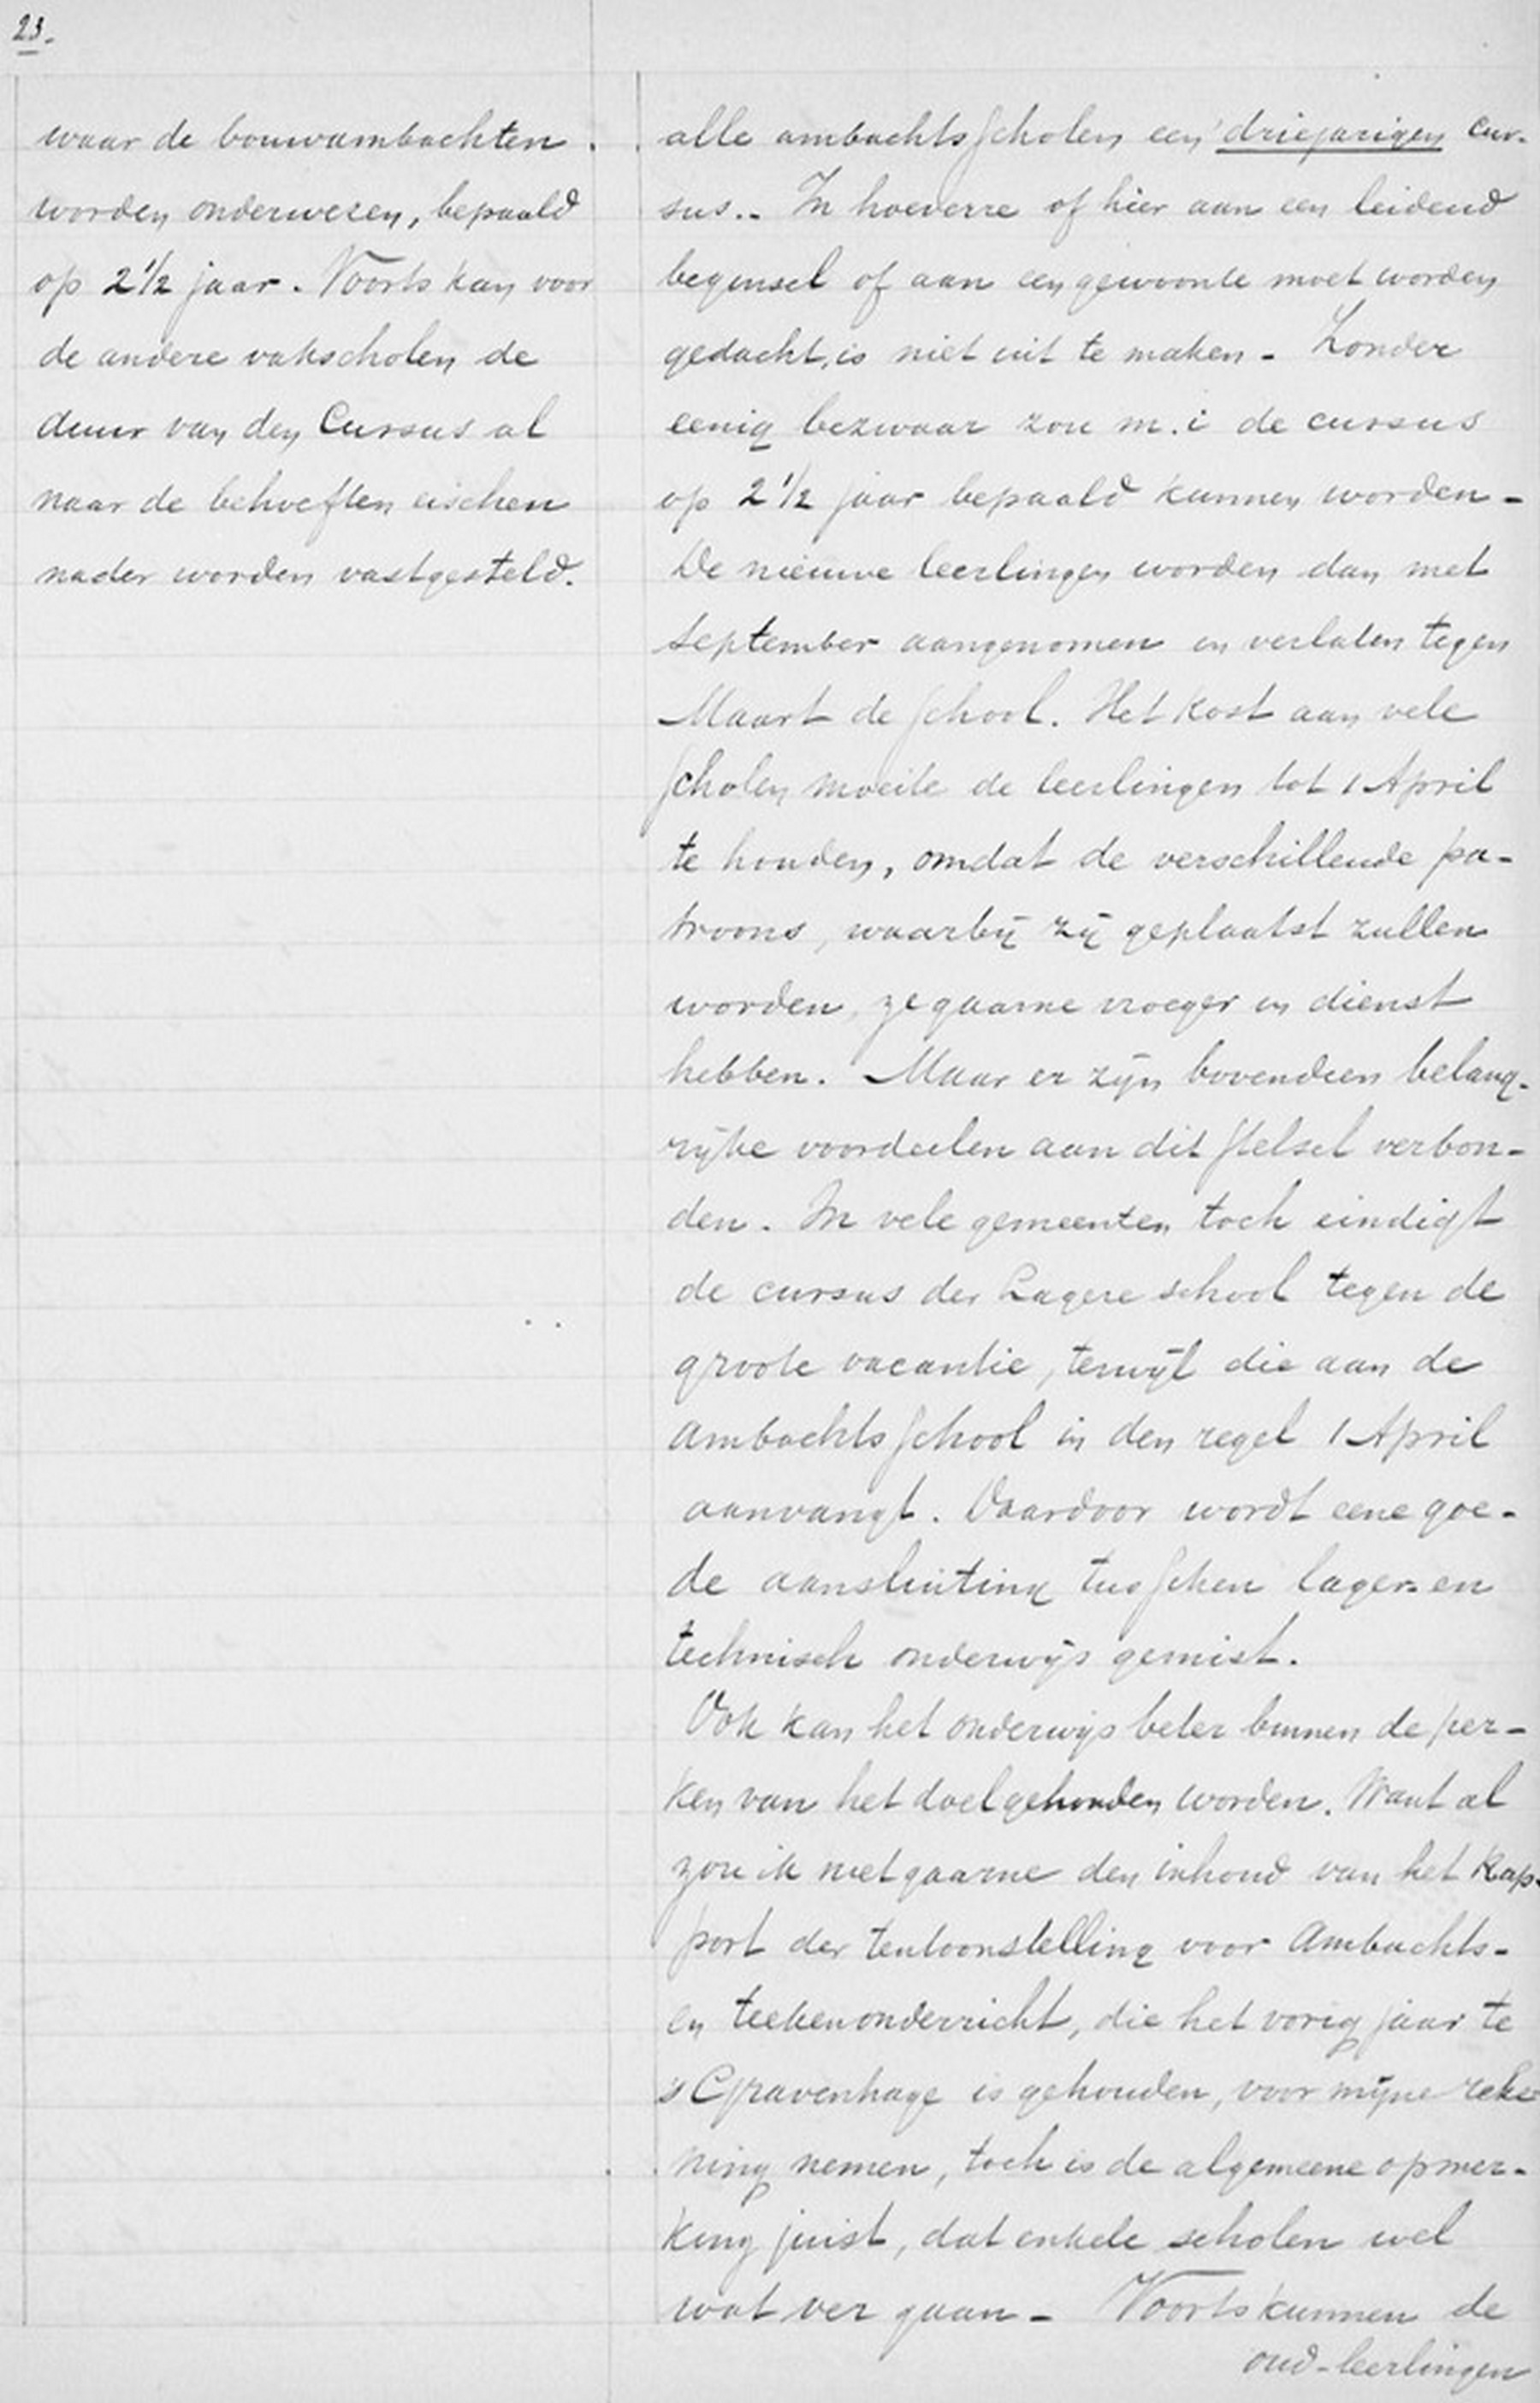 23.
waar de bouwambachten
worden onderwezen, bepaald
op 2 1/2 jaar. Voorts kan voor
de andere vakscholen de
duur van den Cursus al
naar de behoeften eischen
nader worden vastgesteld.
alle ambachtsscholen een driejarigen cur-
sus.. In hoeverre of hier aan een leidend
beginsel of aan een gewoonte moet worden
gedacht, is niet uit te maken - Zonder
eenig bezwaar zou m.i de cursus
op 2 1/2 jaar bepaald kunnen worden -
De nieuwe leerlingen worden dan met
September aangenomen en verlaten tegen
Maart de school. Het kost aan vele
scholen moeite de leerlingen tot 1 April
te houden, omdat de verschillende pa-
troons, waarbij zij geplaatst zullen
worden, ze gaarne vroeger in dienst
hebben. Maar er zijn bovendien belang-
rijke voordeelen aan dit stelsel verbon-
den. In vele gemeenten toch eindigt
de cursus der Lagere school tegen de
groote vacantie, terwijl die aan de
ambachtsschool in den regel 1 April
aanvangt. Daardoor wordt eene goe-
de aansluiting tusschen lager- en
technisch onderwijs gemist.
Ook kan het onderwijs beter binnen de per-
ken van het doel gehouden worden. Want al
zou ik niet gaarne den inhoud van het Rap-
port der tentoonstelling voor Ambachts-
en teekenonderricht, die het vorig jaar te
's Gravenhage is gehouden, voor mijne reke-
ning nemen, toch is de algemeene opmer-
king juist, dat enkele scholen wel
wat ver gaan - Voorts kunnen de
oud-leerlingen